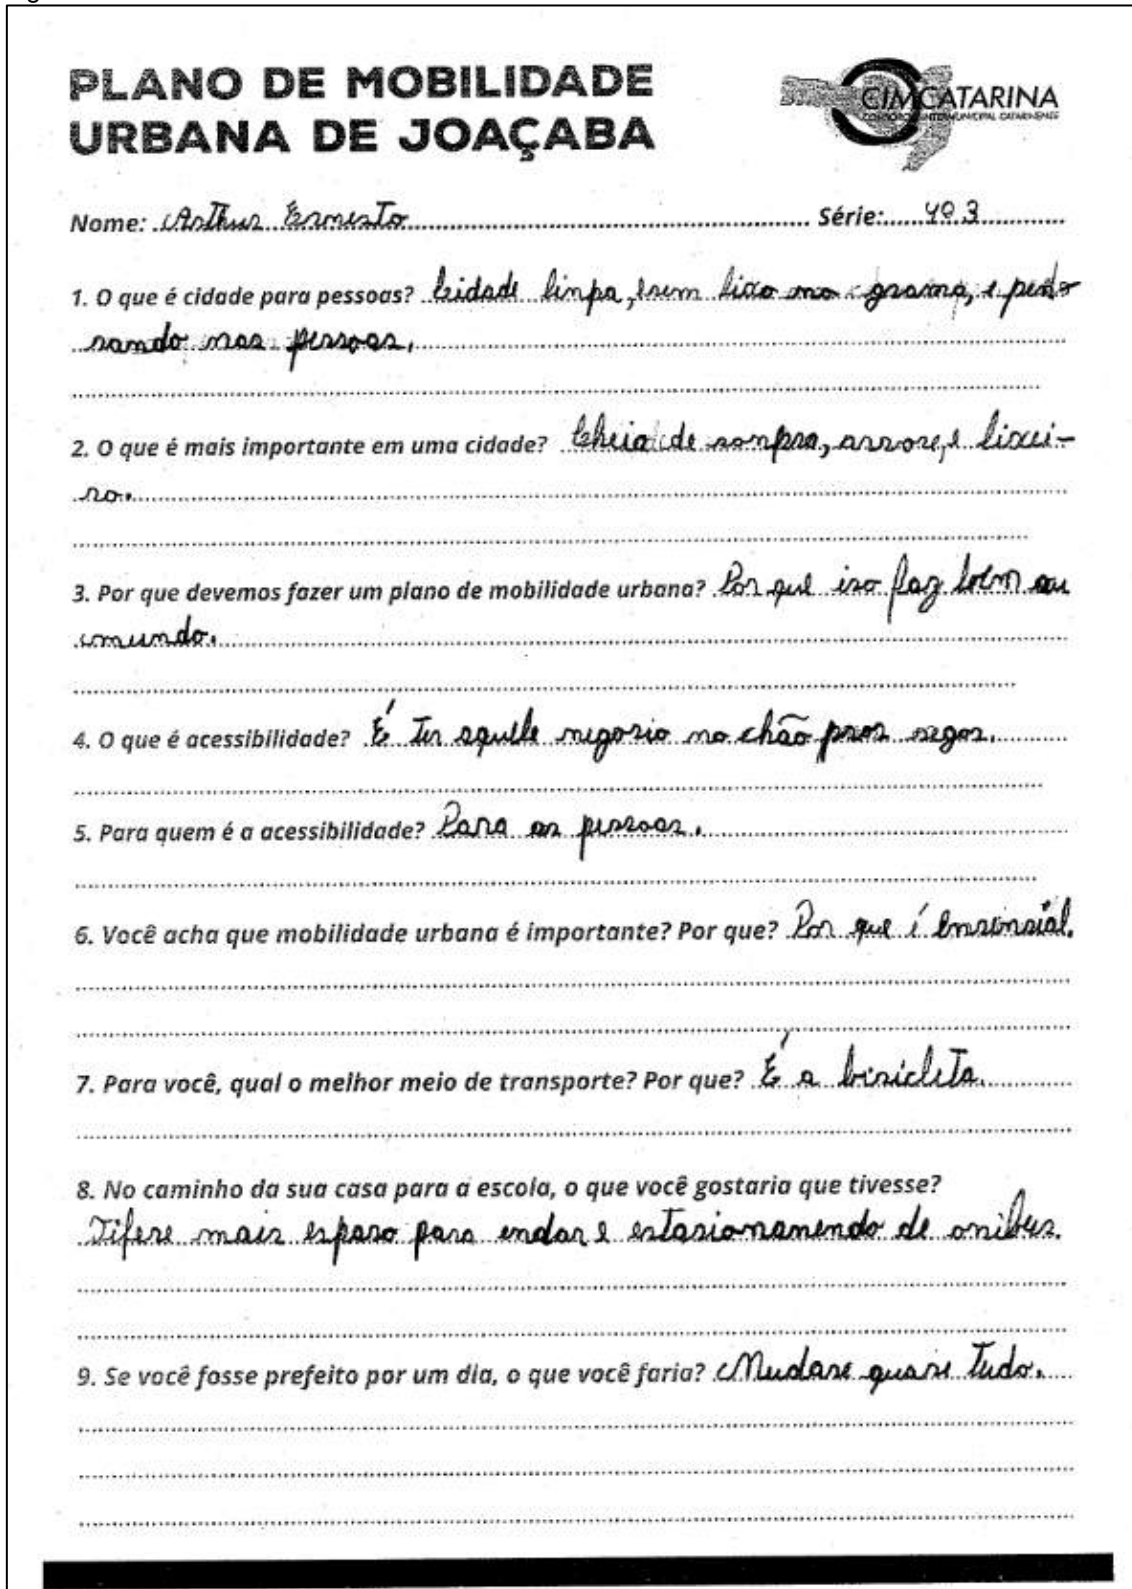 PLANO DE MOBILIDADE
URBANA DE JOAÇABA
CIMCATARINA
CONSÓRCIO INTERMUNICIPAL CATARINENSE
Nome: Arthur Ernesto Série: 4º 3
1. O que é cidade para pessoas? Cidade linpa, sem lixo no grama, e pen
sando nas pessoas.
2. O que é mais importante em uma cidade? Cheia de sonpra, arvore, e lixei-
ro.
3. Por que devemos fazer um plano de mobilidade urbana? Por que iso faz bem au
mundo.
4. O que é acessibilidade? É ter aquele negosio no chão pros segos.
5. Para quem é a acessibilidade? Para as pessoas.
6. Você acha que mobilidade urbana é importante? Por que? Por que é
7. Para você, qual o melhor meio de transporte? Por que? É a bisicleta.
8. No caminho da sua casa para a escola, o que você gostaria que tivesse?
Tifese mais espaso para endar e estasionamendo de onibus.
9. Se você fosse prefeito por um dia, o que você faria? Mudase quase tudo.